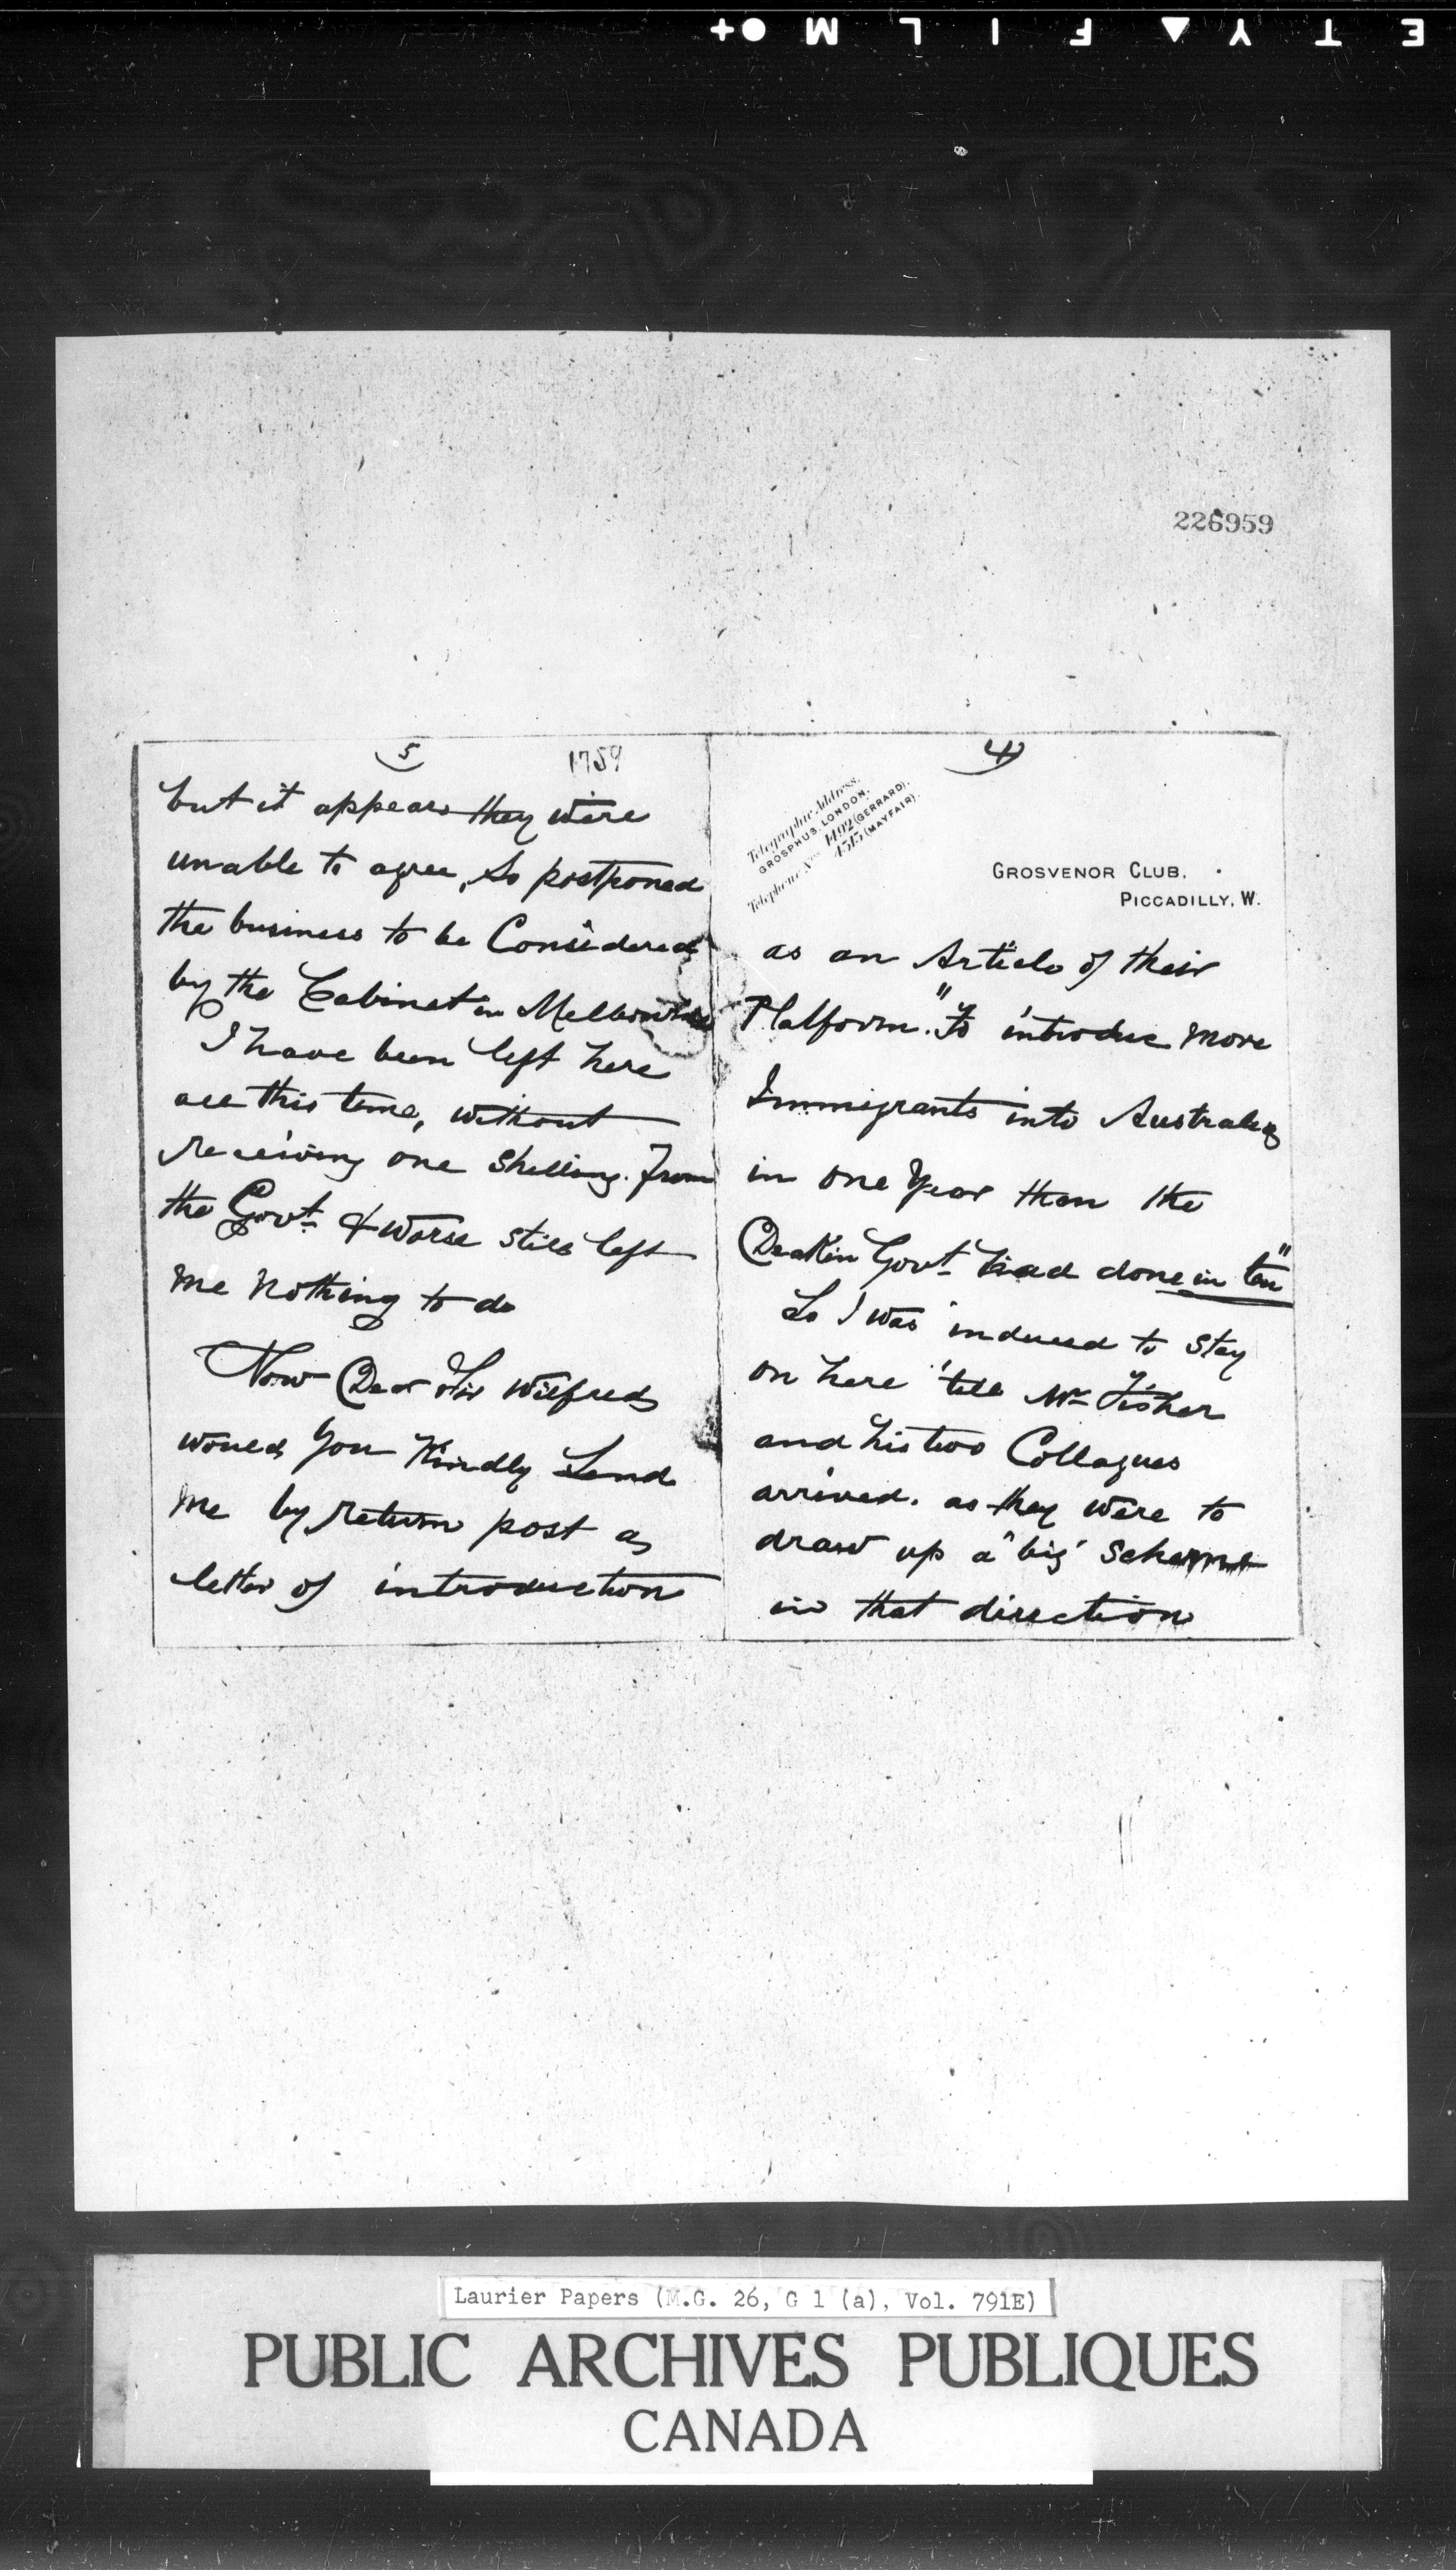 E T Y ▲ F I L M ●+
226959
5
1759
but it appears they were
unable to agree, So postponed
the business to be Considered
by the Cabinet in Melbourne
I have been left here
all this time, without
receiving one Shilling from
the Govt & worse still left
me Nothing to do
Now Dear Sir Wilfred
would you Kindly Send
me by return post a
letter of introduction
4
Telegraphic Address.
GROSPHUS, LONDON.
Telephone Nos 1492 (GERRARD).
4515 (MAYFAIR).
GROSVENOR CLUB,
PICCADILLY, W.
as an Article of their
Platform. "To introduce more
Immigrants into Australia
in one Year than the
Deakin Govt had done in ten"
So I was induced to Stay
on here 'till Mr Fisher
and his two Collagues
arrived. as they were to
draw up a "big" Scheme
in that direction
Laurier Papers (M.G. 26, G 1 (a), Vol. 791E)
PUBLIC ARCHIVES PUBLIQUES
CANADA